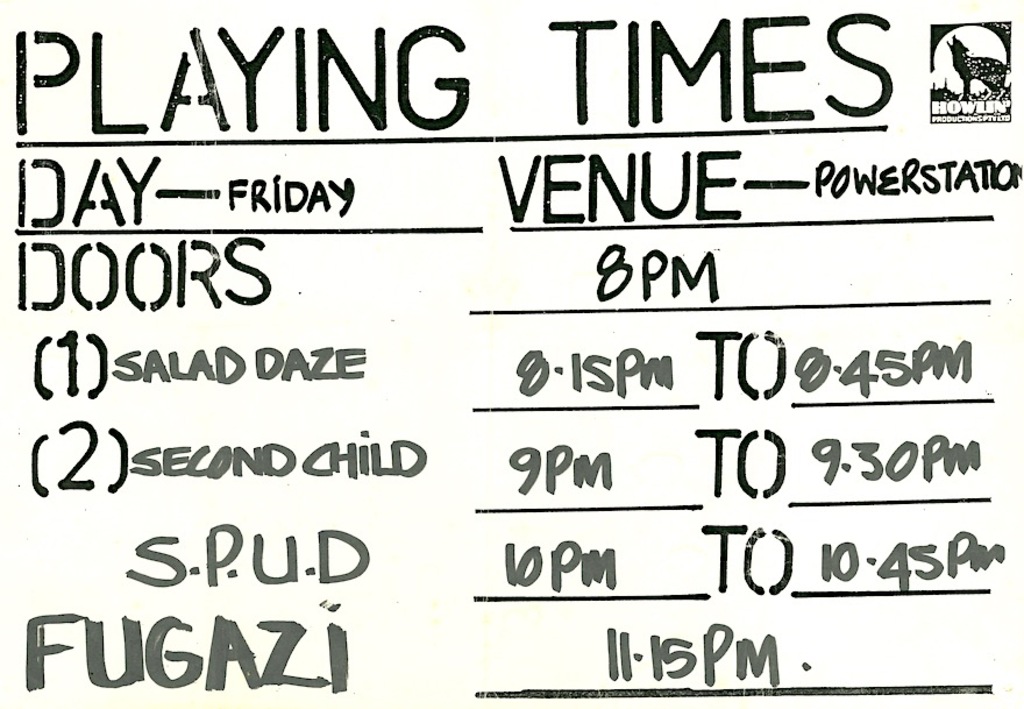 PLAYING TIMES
HOWLIN'
PRODUCTIONS PTY LTD
DAY — FRIDAY VENUE — POWERSTATION
DOORS 8PM
(1) SALAD DAZE 8.15PM TO 8.45PM
(2) SECOND CHILD 9PM TO 9.30PM
S.P.U.D 10PM TO 10.45PM
FUGAZI 11.15PM.